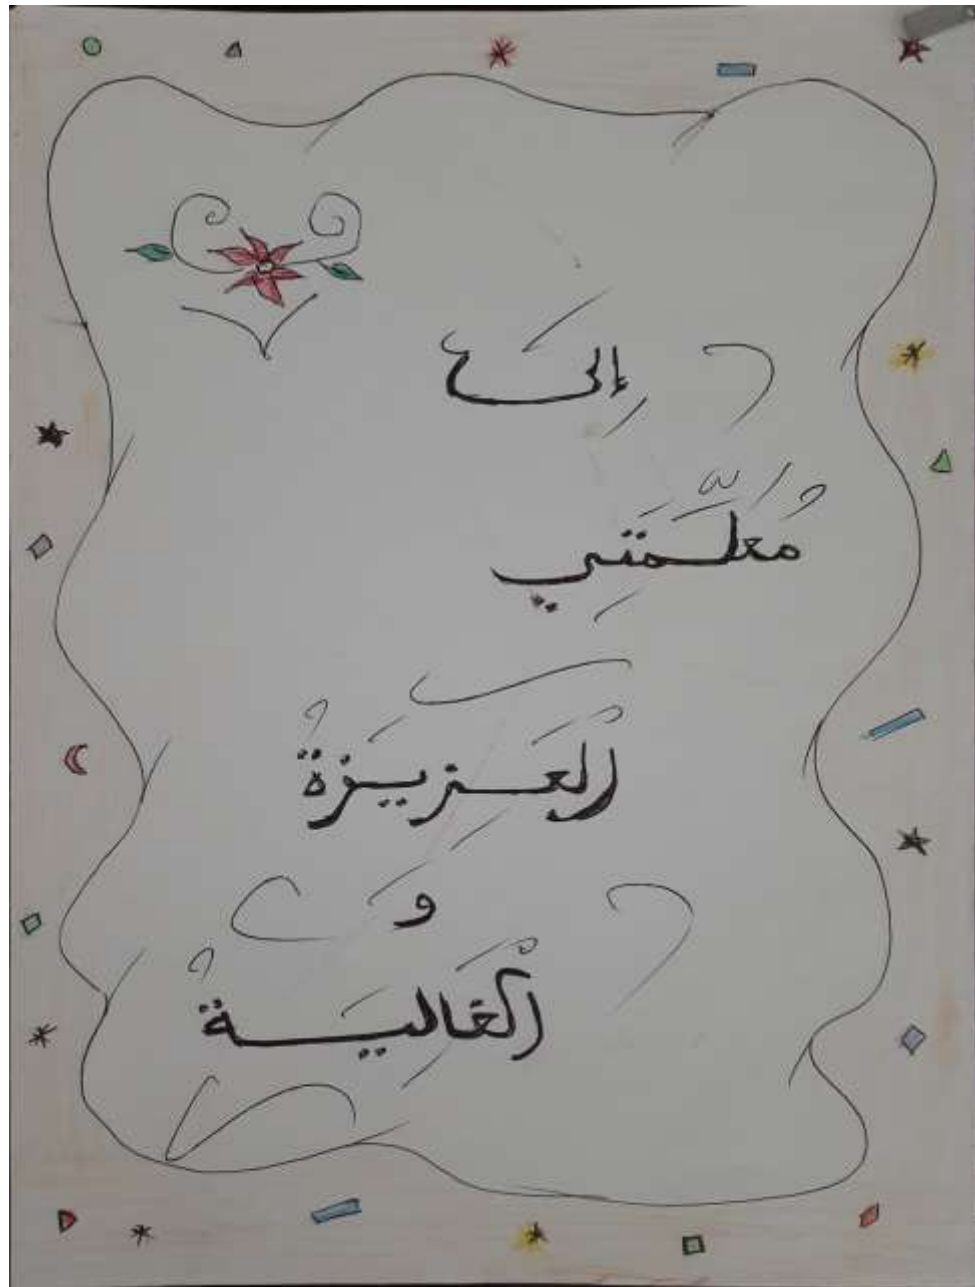 إلى
مُعلِّمَتِي
العَزيزَةُ
وَ
الغَاليَةُ